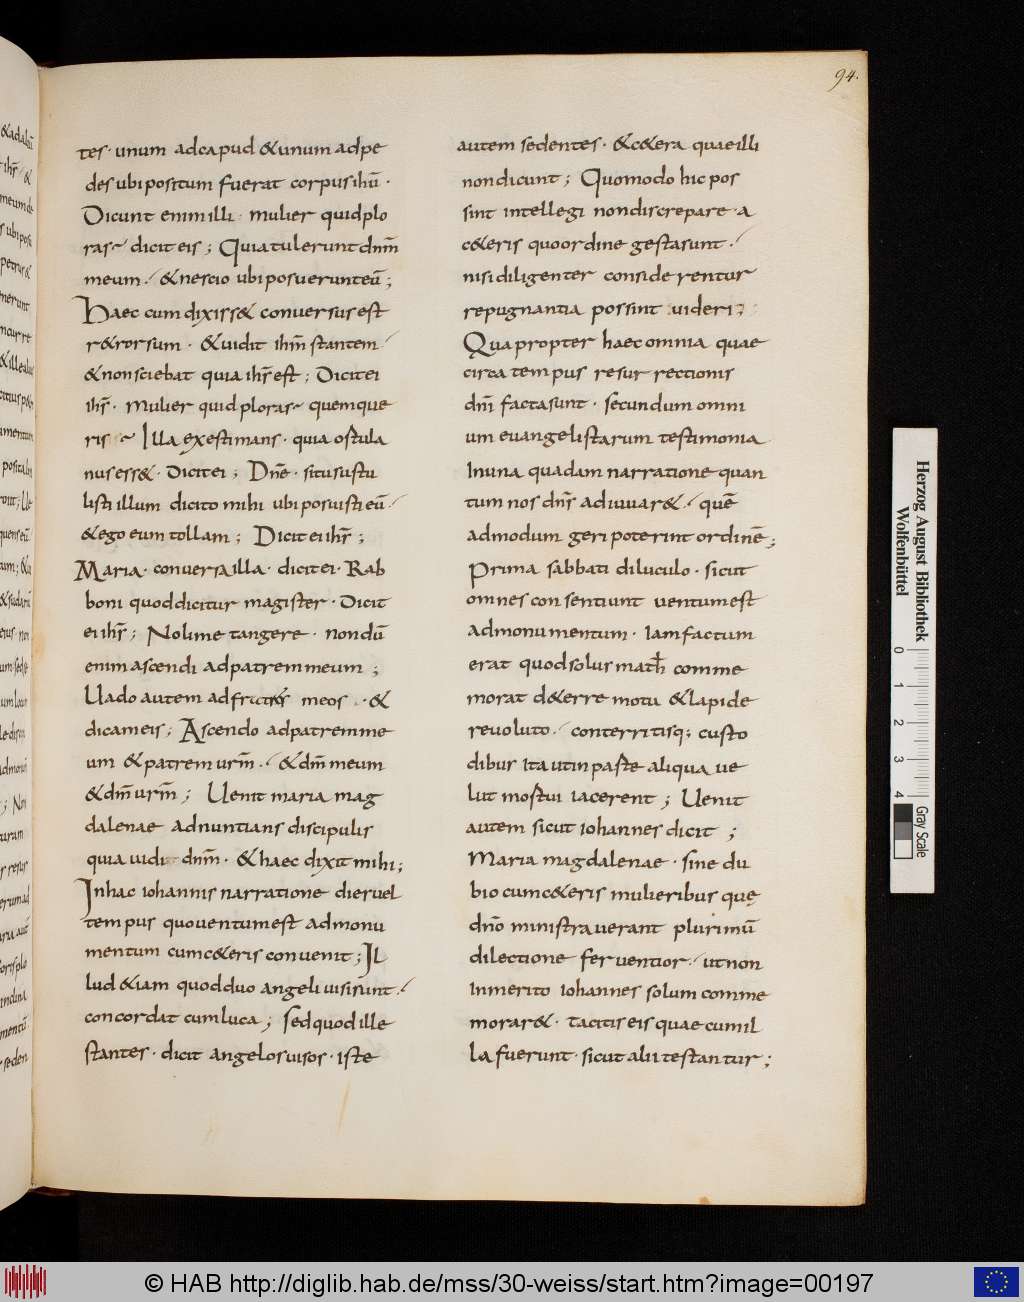 94.
tes · unum adcapud &unum adpe
des ubi positum fuerat corpus ihū ·
Dicunt enim illi · mulier quid plo
ras dicit eis ; Quia tulerunt dnm̄
meum · &nescio ubi posuerunt eū ;
Haec cum dixiss& conversus est
r&rorsum · &uidit ihm̄ stantem
&non sciebat quia ihs̄ est ; Dicit ei
ihs̄ · Mulier quid ploras quem que
ris Illa existimans · quia ostula
nus ess& · Dicit ei ; Dnē · si tu sustu
listi illum dicito mihi ubi posuisti eū
&ego eum tollam ; Dicit ei ihs̄ ;
Maria · conversa illa · dicit ei · Rab
boni quod dicitur magister · Dicit
ei ihs̄ ; Noli me tangere · nondū
enim ascendi ad patrem meum ;
Uado autem ad meos · &
dicam eis ; Ascendo ad patrem me
um &patrem urm̄ · &dm̄ meum
&dm̄ urm̄ ; Uenit maria mag
dalenae adnuntians discipulis
quia uidi dnm̄ · &haec dixit mihi ;
In hac iohannis narratione dies uel
tempus quo uentum est ad monu
mentum cum c&eris conuenit ; Il
lud &iam quod duo angeli uisi sunt
concordat cum luca ; Sed quod ille
stantes · dicit angelos uisos · iste
autem sedentes · &c&era quae illi
non dicunt ; Quomodo hic pos
sint intellegi non discrepare · a
c&eris quo ordine gesta sunt
nisi diligenter considerentur
repugnantia possint uideri ;
Quapropter haec omnia quae
circa tempus resurrectionis
dnī facta sunt · secundum omni
um euangelistarum testimonia
In una quadam narratione quan
tum nos dns̄ adiuuar& · quē
admodum geri poterint ordinē ;
Prima sabbati diluculo · sicut
omnes consentiunt uentum est
ad monumentum · Iam factum
erat quod solus math comme
morat de t&erre motu &lapide
reuoluto · conterritisq; custo
dibus Ita ut in parte aliqua ue
lut mortui iacerent ; Uenit
autem sicut iohannes dicit ;
Maria magdalenae · sine du
bio cum c&eris mulieribus quę
dnō ministrauerant plurimū
dilectione feruentior · ut non
Inmerito iohannes solum comme
morar& · tacitis eis quae cum il
la fuerunt · sicut alii testantur ;
Herzog August Bibliothek
Wolfenbüttel
0 1 2 3 4
Gray Scale
© HAB http://diglib.hab.de/mss/30-weiss/start.htm?image=00197